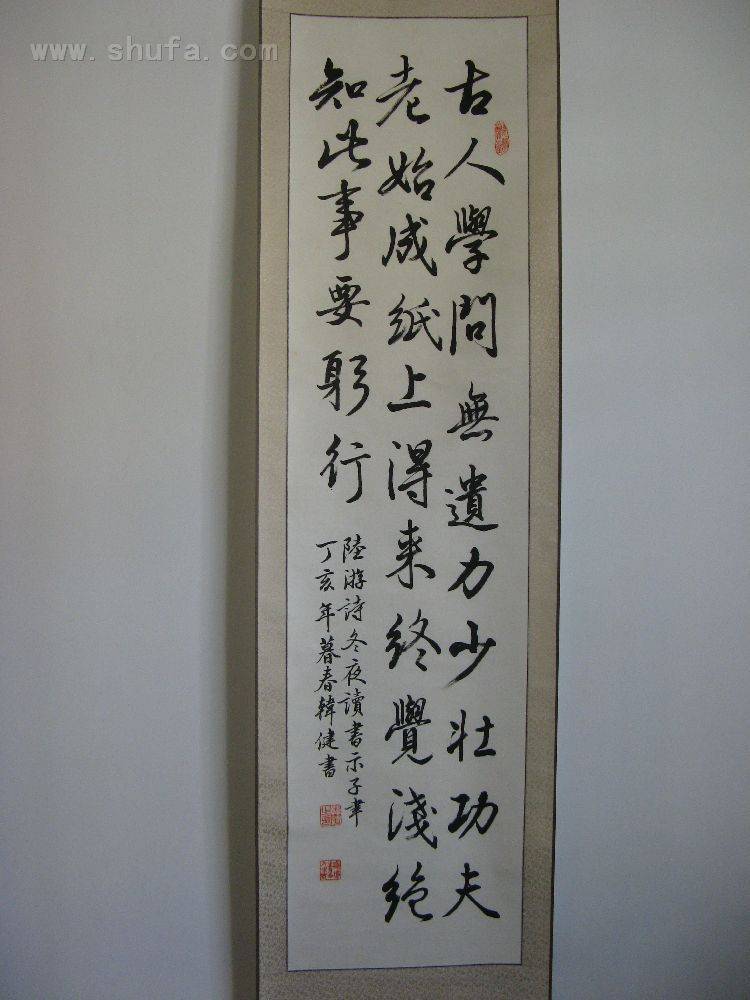 www.shufa.com
古人學問無遺力少壯功夫
老始成紙上得来終覺淺絶
知此事要躬行
陸游詩冬夜讀書示子聿
丁亥年暮春韓健書